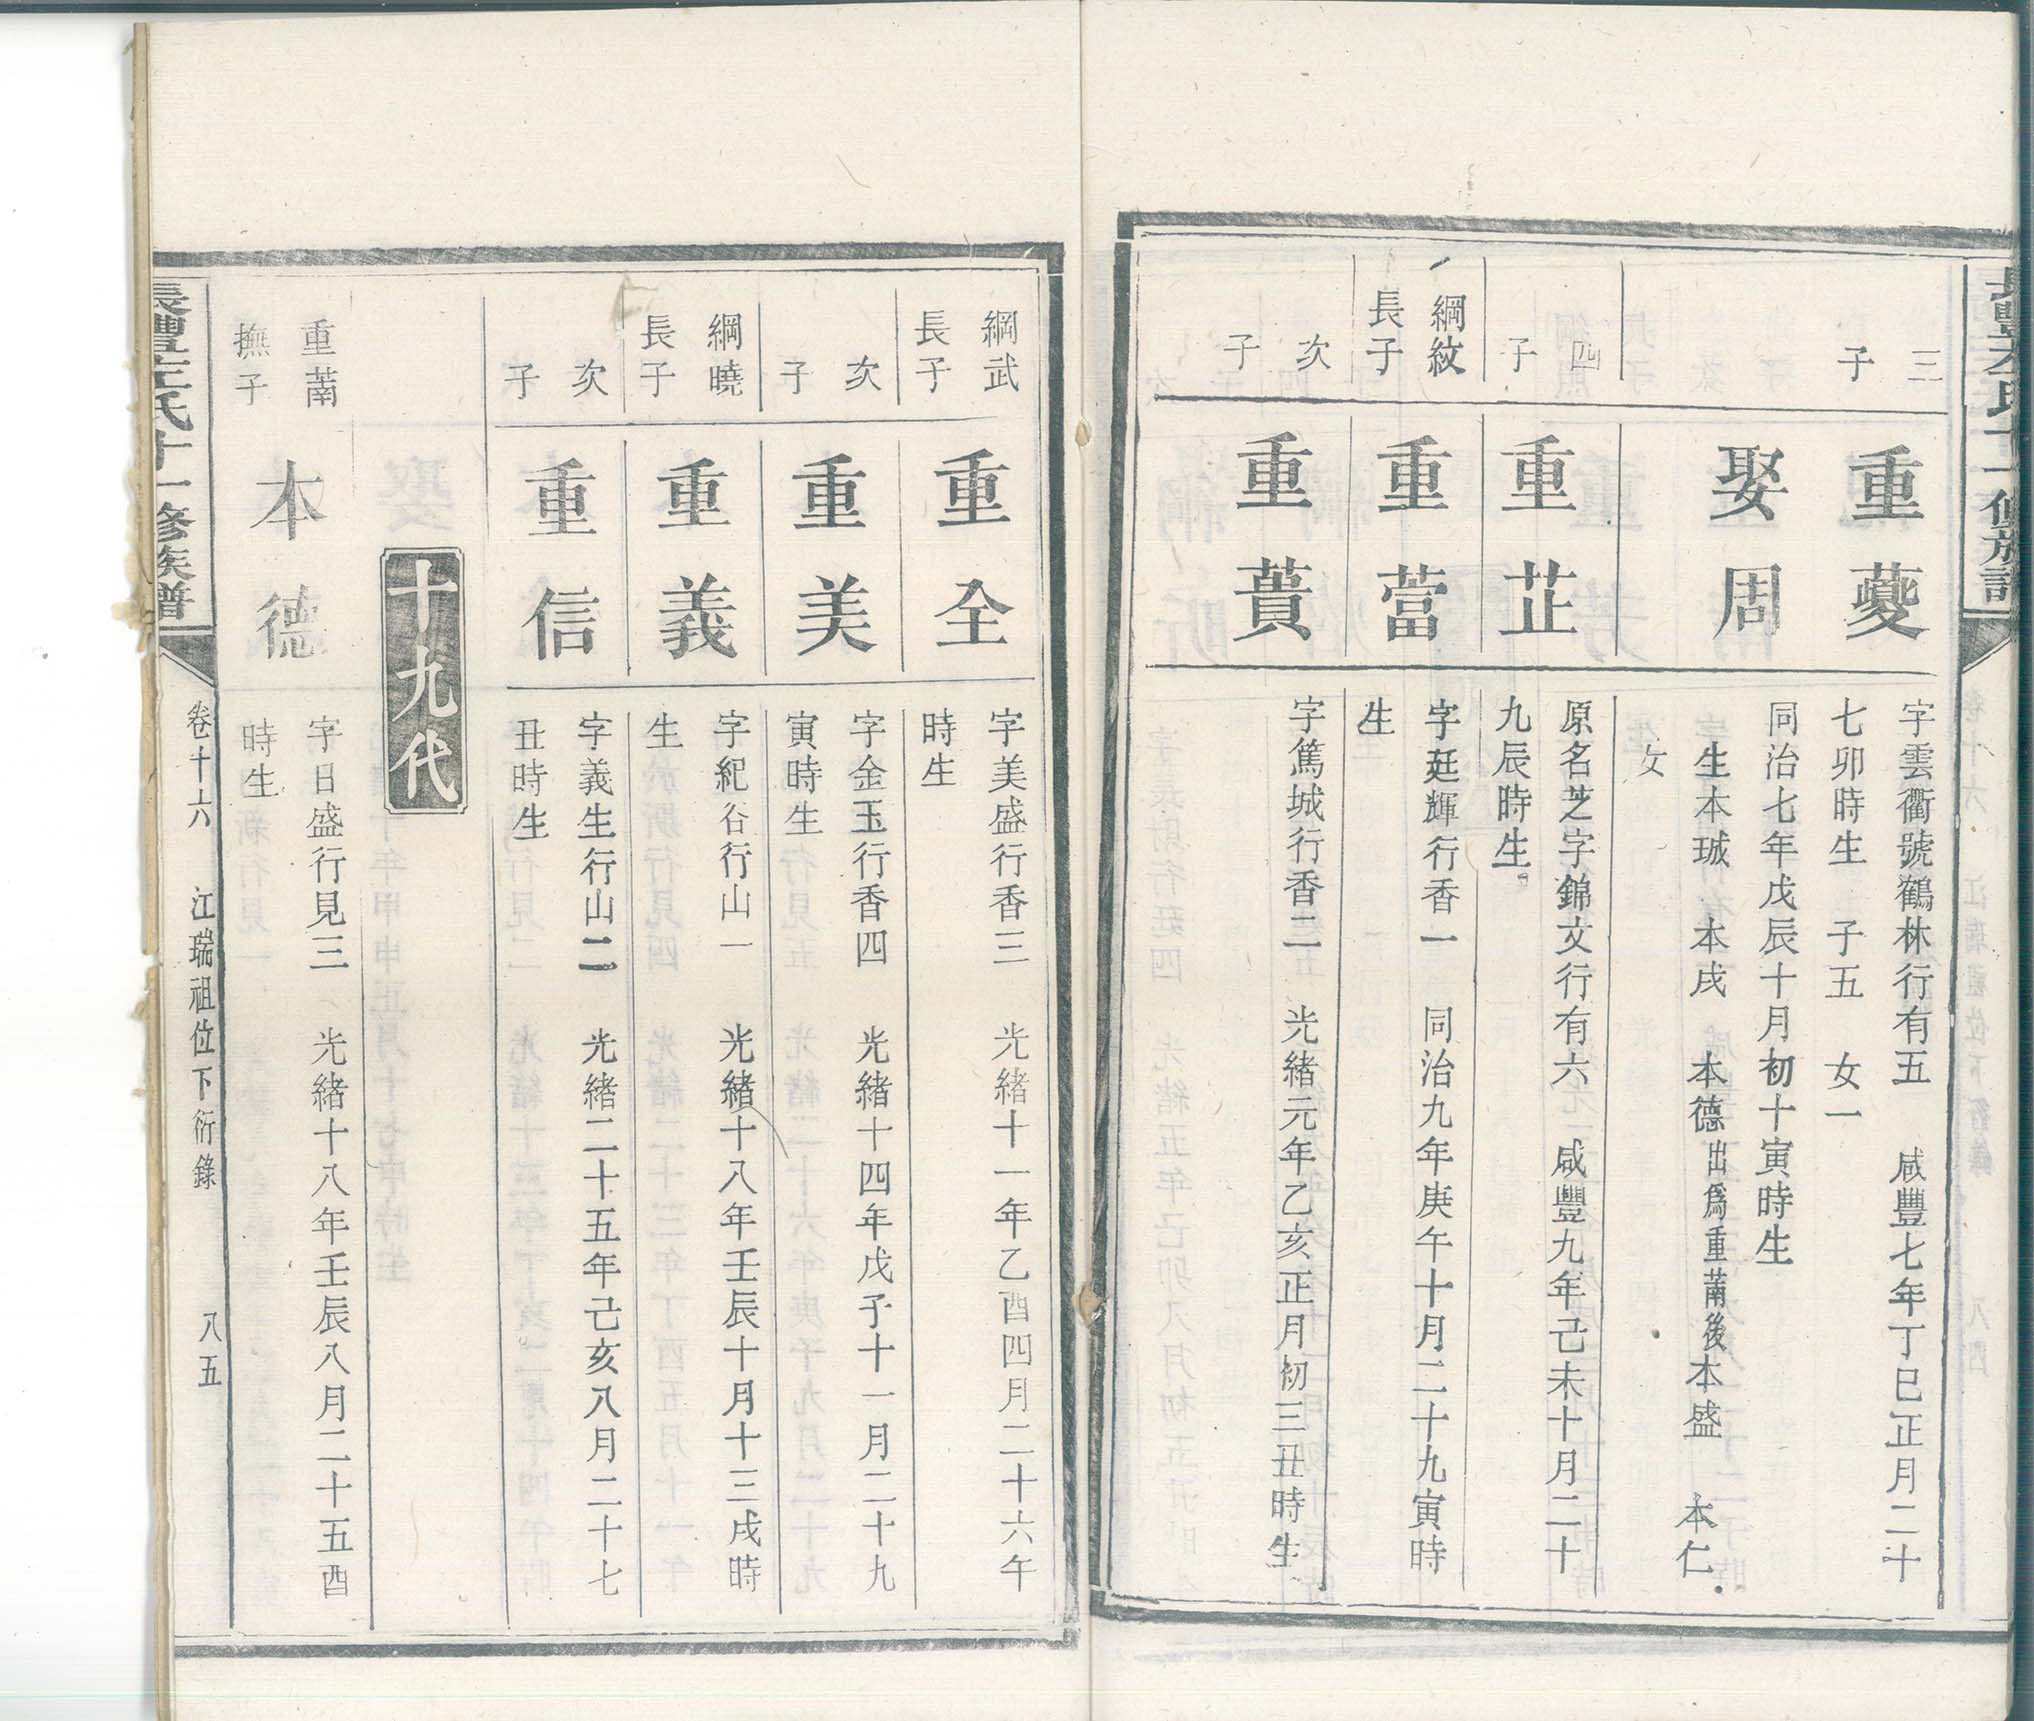 長豐左氏十一修族譜
三子
重蘷
字雲衢號鶴林行有五 咸豐七年丁巳正月二十
七卯時生 子五 女一
娶周
同治七年戊辰十月初十寅時生
生本珹 本戌 本德出爲重萳後本盛 本仁
女
四子
重芷
原名芝字錦文行有六 咸豐九年己未十月二十
九辰時生
綱紋長子
重蓸
字廷輝行香一 同治九年庚午十月二十九寅時
生
次子
重蕡
字篤城行香二 光緒元年乙亥正月初三丑時生
綱武長子
重全
字美盛行香三 光緒十一年乙酉四月二十六午
時生
次子
重美
字金玉行香四 光緒十四年戊子十一月二十九
寅時生
綱曉長子
重義
字紀谷行山一 光緒十八年壬辰十月十三戌時
生
次子
重信
字義生行山二 光緒二十五年己亥八月二十七
丑時生
十九代
重萳撫子
本德
字日盛行見三 光緒十八年壬辰八月二十五酉
時生
長豐左氏十一修族譜
卷十六 江瑞祖位下衍錄 八五